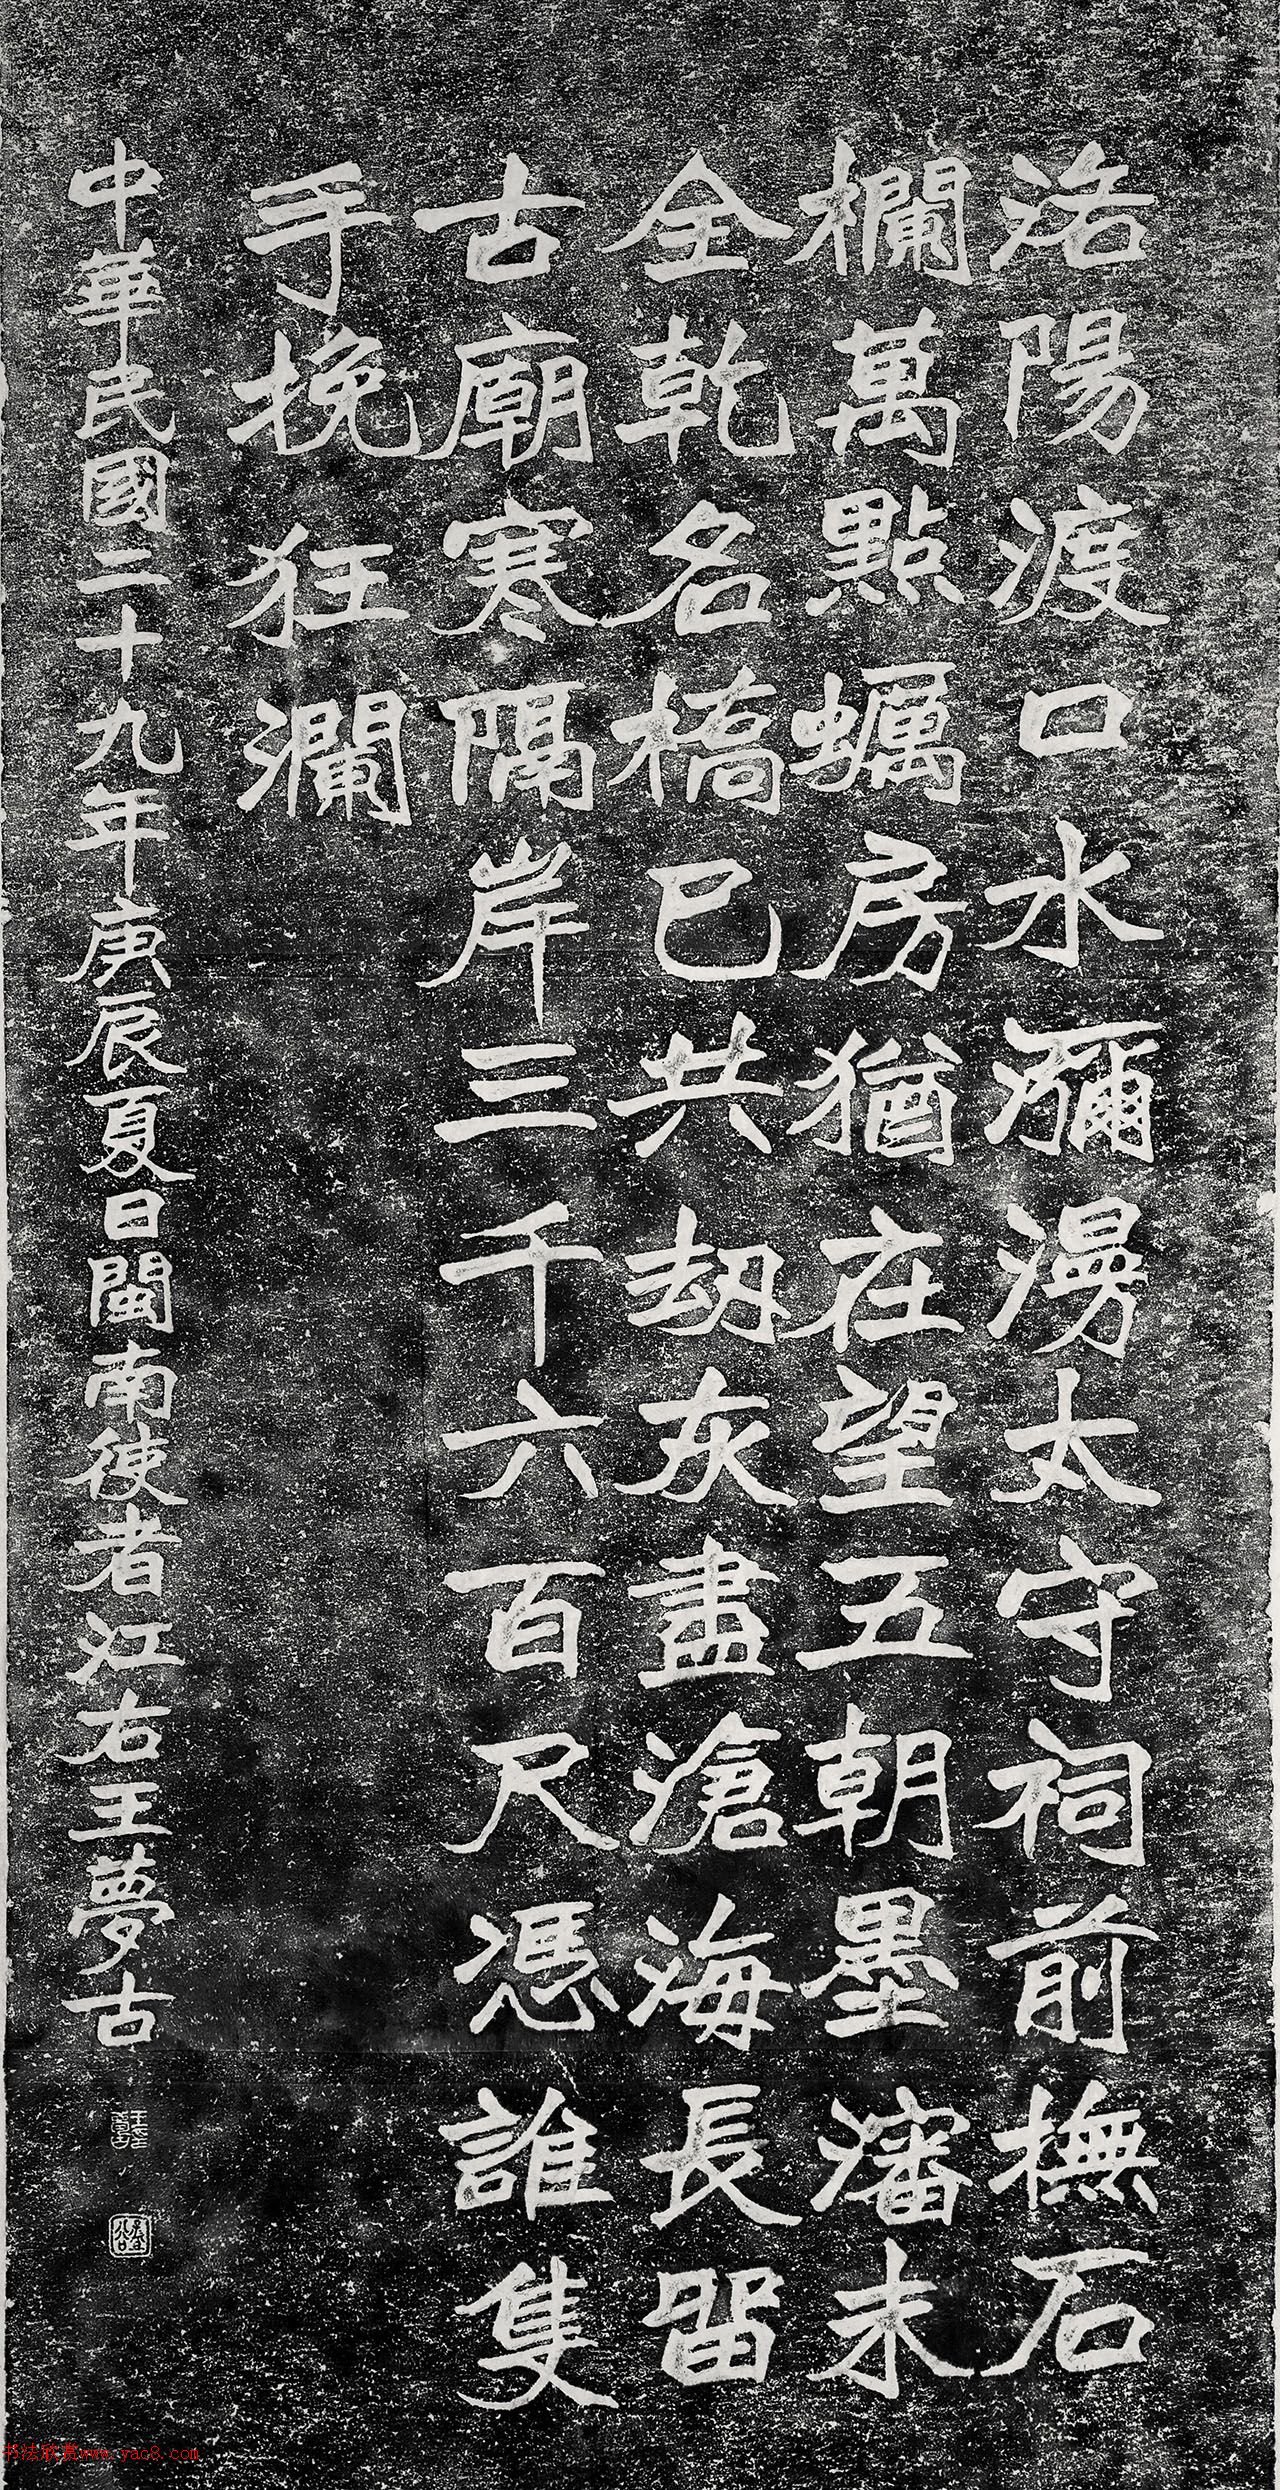 洛陽渡口水瀰漫太守祠前撫石
欄萬點蠣房猶在望五朝墨瀋未
全乾名橋已共劫灰盡滄海長留
古廟寒隔岸三千六百尺憑誰隻
手挽狂瀾
中華民國二十九年庚辰夏日閩南使者江右王夢古
书法欣赏www.yac8.com